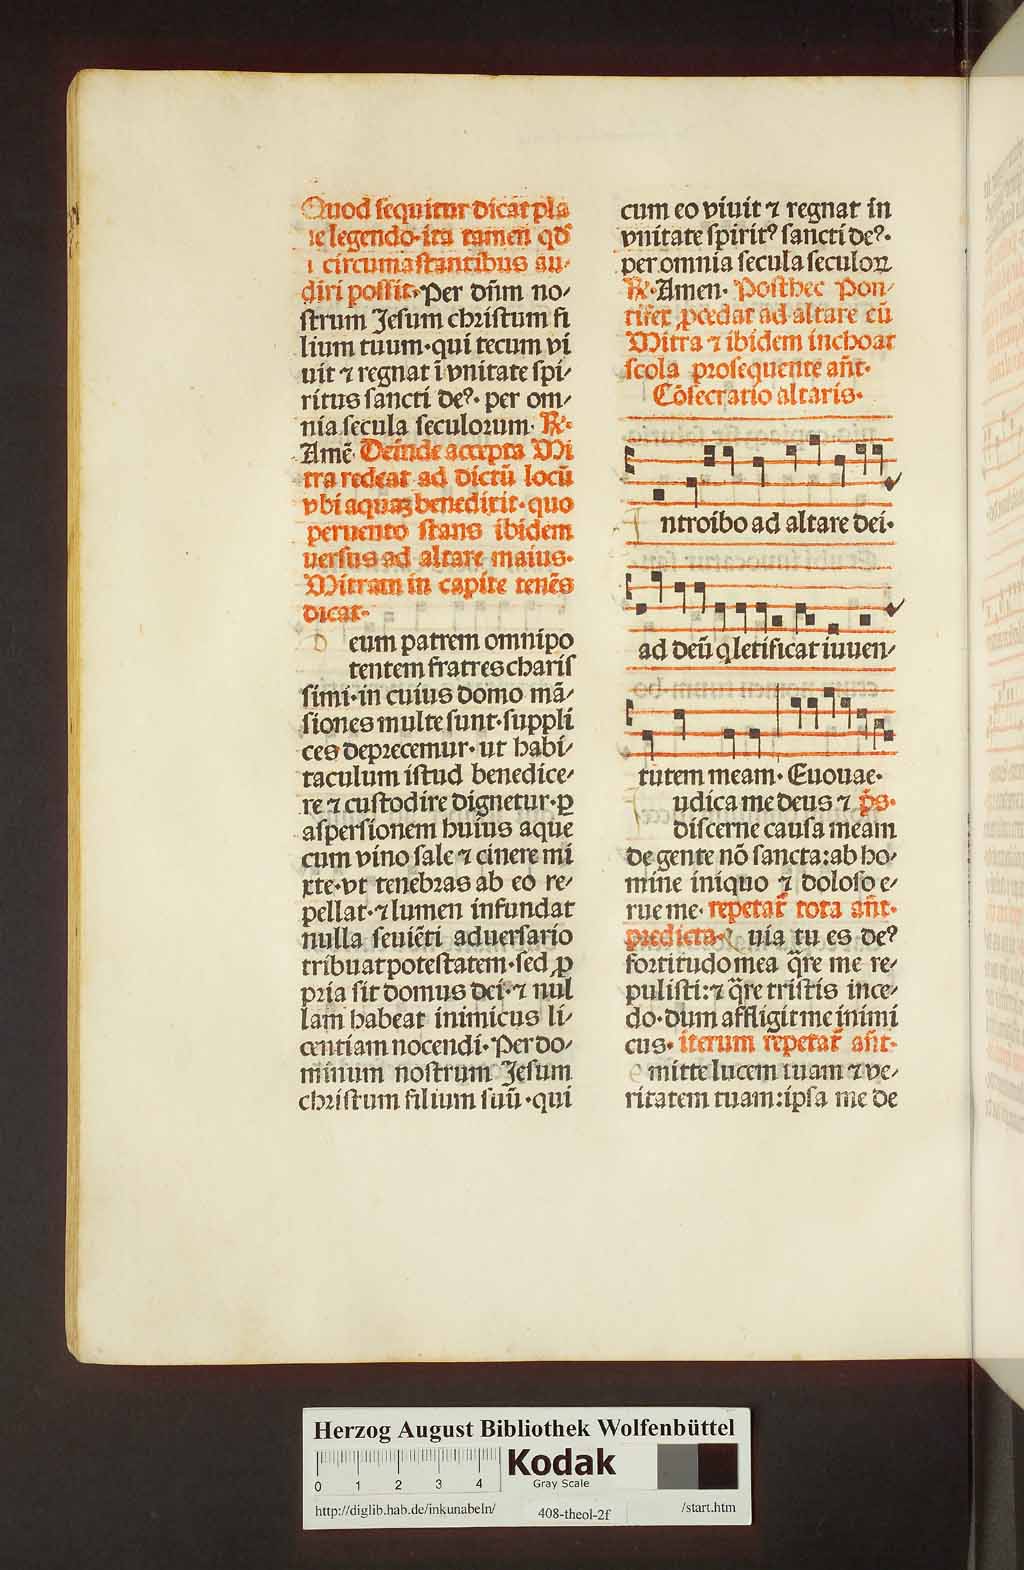 Quod sequitur dicat pla
ne legendo·ita tamen qđ
i circumastantibus au⸗
diri possit·Per dñm no⸗
strum Jesum christum fi
lium tuum·qui tecum vi
uit ⁊ regnat ī vnitate spi⸗
ritus sancti deꝰ· per om⸗
nia secula seculorum· ℟·
Amē· Deinde accepta Mi
tra redeat ad dictū locū
vbi aquaꝫ benedixit·quo
peruento stans ibidem
uersus ad altare maius·
Mitram in capite tenēs
dicat·
D eum patrem omnipo
tentem fratres charis
simi·in cuius domo mā⸗
siones multe sunt·suppli
ces deprecemur·ut habi⸗
taculum istud benedice⸗
re ⁊ custodire dignetur·ꝑ
aspersionem huius aque
cum vino sale ⁊ cinere mi
xte·vt tenebras ab eo re⸗
pellat·⁊ lumen infundat
nulla seuiēti aduersario
tribuat potestatem·sed ꝓ
pria sit domus dei·⁊ nul
lam habeat inimicus li⸗
centiam nocendi·Per do⸗
minum nostrum Jesum
christum filium suū·qui
cum eo viuit ⁊ regnat in
vnitate spiritꝰ sancti deꝰ·
per omnia secula seculoꝝ
℟·Amen· Posthec Pon⸗
tifex ꝓcedat ad altare cū
Mitra ⁊ ibidem inchoat
scola prosequente añt·
Cōsecratio altaris·
I ntroibo ad altare dei·
ad deū q letificat iuuen⸗
tutem meam· Euouae·
I udica me deus ⁊ p̄s·
discerne causa meam
de gente nō sancta:ab ho⸗
mine iniquo ⁊ doloso e⸗
rue me· repetat̃ tota añt·
predicta· uia tu es deꝰ
fortitudo mea q̄re me re⸗
pulisti:⁊ q̄re tristis ince⸗
do·dum affligit me inimi
cus· iterum repetat̃ añt·
mitte lucem tuam ⁊ ve⸗
ritatem tuam:ipsa me de
Herzog August Bibliothek Wolfenbüttel
0 1 2 3 4
Kodak
Gray Scale
http://diglib.hab.de/inkunabeln/
408-theol-2f
/start.htm